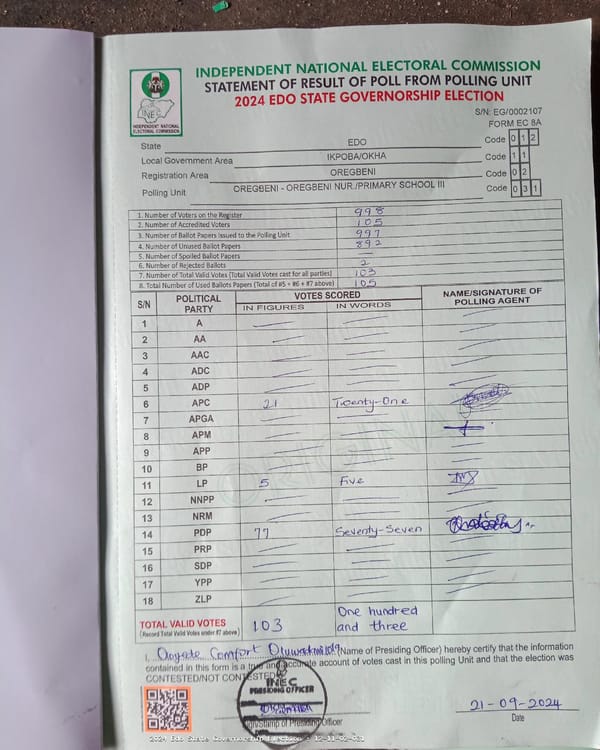 INDEPENDENT NATIONAL ELECTORAL COMMISSION
STATEMENT OF RESULT OF POLL FROM POLLING UNIT
2024 EDO STATE GOVERNORSHIP ELECTION
INEC
INDEPENDENT NATIONAL
ELECTORAL COMMISSION
S/N: EG/0002107
FORM EC 8A
State EDO Code 0 1 2
Local Government Area IKPOBA/OKHA Code 1 1
Registration Area OREGBENI Code 0 2
Polling Unit OREGBENI - OREGBENI NUR./PRIMARY SCHOOL III Code 0 3 1
1. Number of Voters on the Register 998
2. Number of Accredited Voters 105
3. Number of Ballot Papers Issued to the Polling Unit 997
4. Number of Unused Ballot Papers 892
5. Number of Spoiled Ballot Papers —
6. Number of Rejected Ballots 2
7. Number of Total Valid Votes (Total Valid Votes cast for all parties) 103
8. Total Number of Used Ballots Papers (Total of #5 + #6 + #7 above) 105
S/N POLITICAL PARTY VOTES SCORED NAME/SIGNATURE OF POLLING AGENT
IN FIGURES IN WORDS
1 A
2 AA
3 AAC
4 ADC
5 ADP
6 APC 21 Twenty-One
7 APGA
8 APM
9 APP
10 BP
11 LP 5 Five
12 NNPP
13 NRM
14 PDP 77 Seventy-Seven
15 PRP
16 SDP
17 YPP
18 ZLP
TOTAL VALID VOTES 103 One hundred and three
(Record Total Valid Votes under #7 above)
I, Comfort (Name of Presiding Officer) hereby certify that the information
contained in this form is a true and accurate account of votes cast in this polling Unit and that the election was
CONTESTED/NOT CONTESTED
INEC
PRESIDING OFFICER
Stamp of Presiding Officer
21-09-2024
Date
2024 Edo State Governorship Election